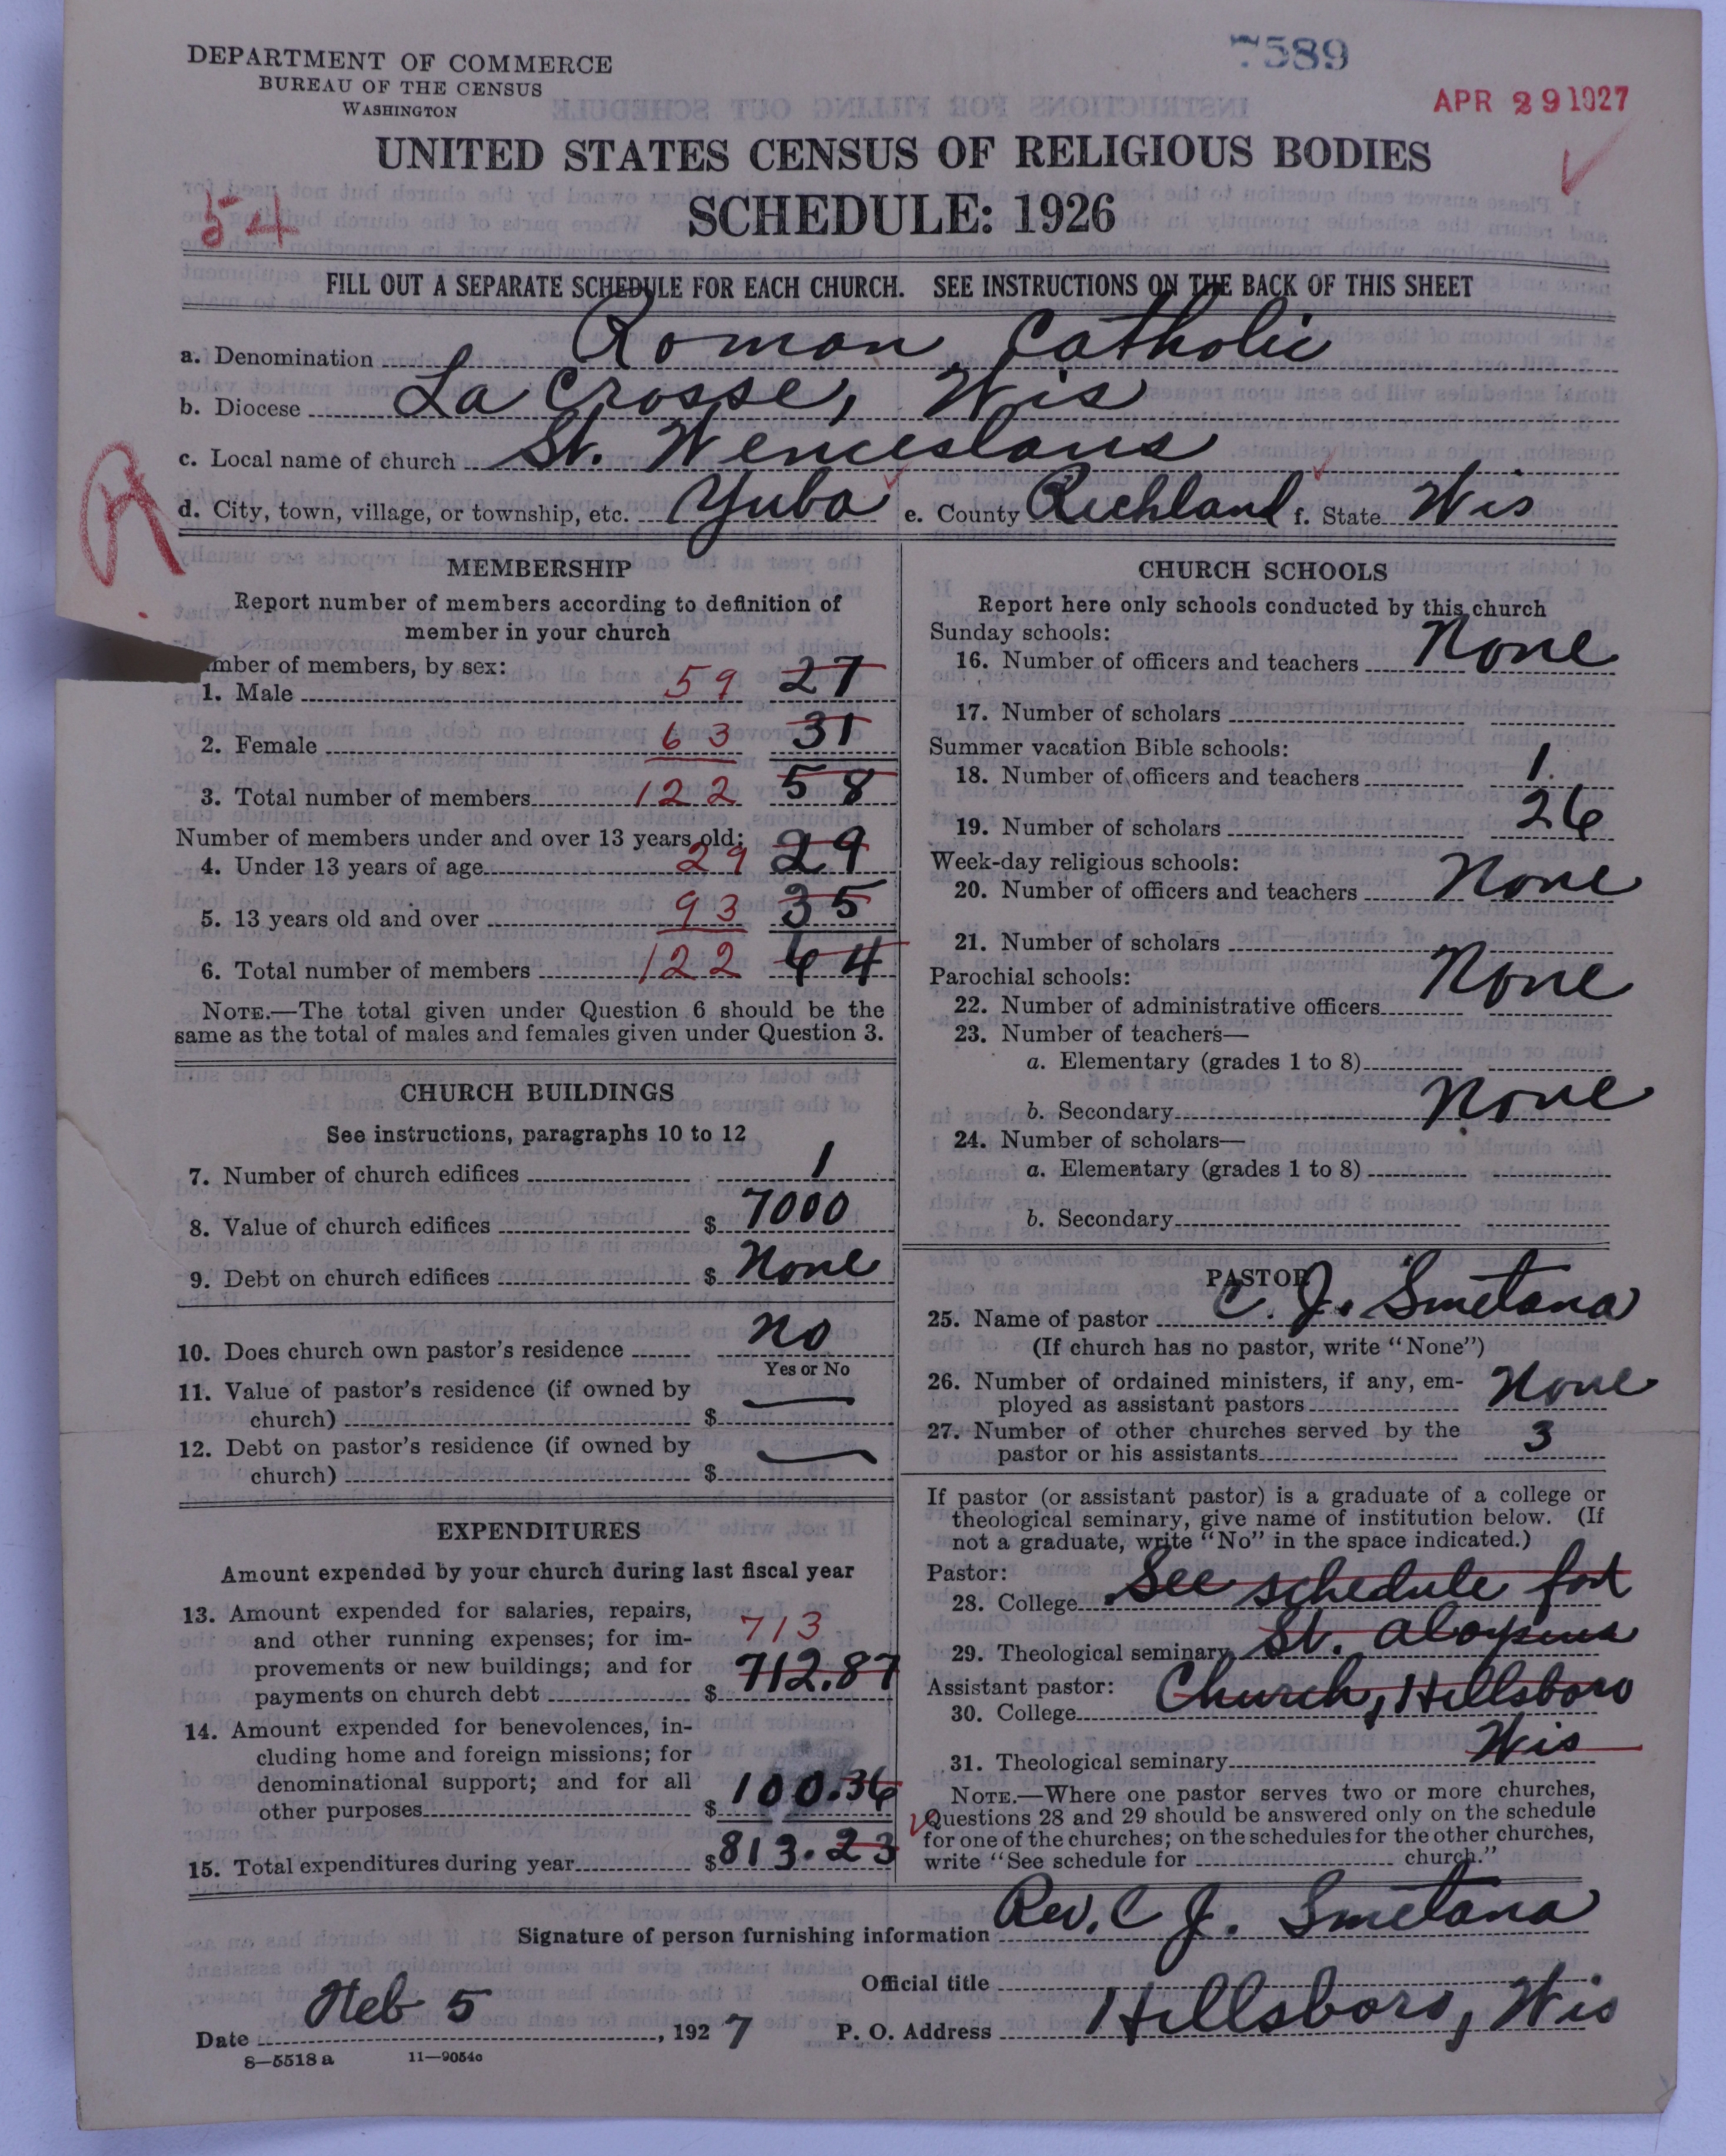 DEPARTMENT OF COMMERCE
BUREAU OF THE CENSUS
WASHINGTON
7589
APR 29 1927
UNITED STATES CENSUS OF RELIGIOUS BODIES
SCHEDULE: 1926
54
FILL OUT A SEPARATE SCHEDULE FOR EACH CHURCH. SEE INSTRUCTIONS ON THE BACK OF THIS SHEET
a. Denomination Roman Catholic
b. Diocese La Crosse, Wis
c. Local name of church St. Wenceslaus
d. City, town, village, or township, etc. Yuba e. County Richland f. State Wis
MEMBERSHIP
Report number of members according to definition of
member in your church
mber of members, by sex:
1. Male 59 27
2. Female 63 31
3. Total number of members 122 58
Number of members under and over 13 years old:
4. Under 13 years of age 29 29
5. 13 years old and over 93 35
6. Total number of members 122 64
NOTE.—The total given under Question 6 should be the
same as the total of males and females given under Question 3.
CHURCH BUILDINGS
See instructions, paragraphs 10 to 12
7. Number of church edifices 1
8. Value of church edifices $ 7000
9. Debt on church edifices $ None
10. Does church own pastor's residence no
Yes or No
11. Value of pastor's residence (if owned by
church) $ —
12. Debt on pastor's residence (if owned by
church) $ —
EXPENDITURES
Amount expended by your church during last fiscal year
13. Amount expended for salaries, repairs,
and other running expenses; for im- 713
provements or new buildings; and for
payments on church debt $ 712.87
14. Amount expended for benevolences, in-
cluding home and foreign missions; for
denominational support; and for all
other purposes $ 100.36
15. Total expenditures during year $ 813.23
CHURCH SCHOOLS
Report here only schools conducted by this church
Sunday schools:
16. Number of officers and teachers None
17. Number of scholars
Summer vacation Bible schools:
18. Number of officers and teachers 1.
19. Number of scholars 26
Week-day religious schools:
20. Number of officers and teachers None
21. Number of scholars
Parochial schools:
22. Number of administrative officers None
23. Number of teachers—
a. Elementary (grades 1 to 8)
b. Secondary None
24. Number of scholars—
a. Elementary (grades 1 to 8)
b. Secondary
PASTOR
25. Name of pastor C. J. Smetana
(If church has no pastor, write "None")
26. Number of ordained ministers, if any, em-
ployed as assistant pastors None
27. Number of other churches served by the
pastor or his assistants 3
If pastor (or assistant pastor) is a graduate of a college or
theological seminary, give name of institution below. (If
not a graduate, write "No" in the space indicated.)
Pastor:
28. College See schedule for
29. Theological seminary St. Aloysius
Assistant pastor:
30. College Church, Hillsboro
31. Theological seminary Wis
NOTE.—Where one pastor serves two or more churches,
Questions 28 and 29 should be answered only on the schedule
for one of the churches; on the schedules for the other churches,
write "See schedule for church."
Signature of person furnishing information Rev. C J. Smetana
Official title
Date Feb 5, 1927 P. O. Address Hillsboro, Wis
8—5518 a 11—9054c